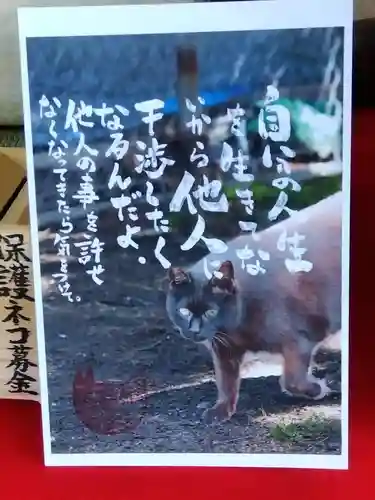 自分の人生
を生きてな
いから他人に
干渉したく
なるんだよ、
他人の事を許せ
なくなってきたら気をつけて。
保護ネコ募金